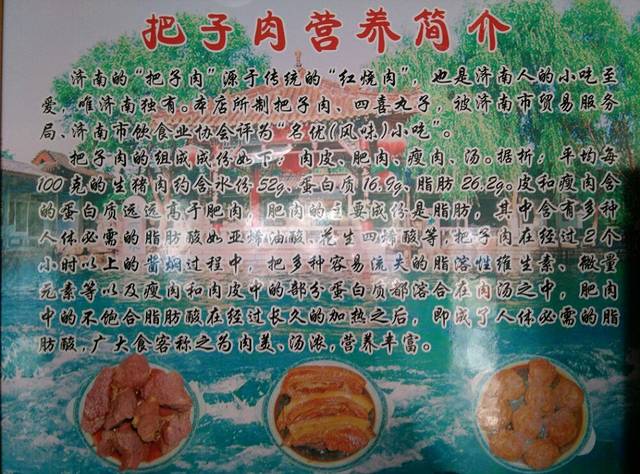 把子肉营养简介
济南的“把子肉”源于传统的“红烧肉”，也是济南人的小吃至
爱，唯济南独有。本店所制把子肉、四喜丸子，被济南市贸易服务
局、济南市饮食业协会评为“名优（风味）小吃”。
把子肉的组成成份如下：肉皮、肥肉、瘦肉、汤。据折：平均每
100克的生猪肉约含水份52g、蛋白质16.9g、脂肪26.2g。皮和瘦肉含
的蛋白质远远高于肥肉，肥肉的主要成份是脂肪，其中含有多种
人体必需的脂肪酸如亚烯油酸、花生四烯酸等，把子肉在经过2个
小时以上的焖过程中，把多种容易流失的脂溶性维生素、微量
元素等以及瘦肉和肉皮中的部分蛋白质都溶合在肉汤之中，肥肉
中的不饱合脂肪酸在经过长久的加热之后，即成了人体必需的脂
肪酸，广大食客称之为肉美、汤浓，营养丰富。